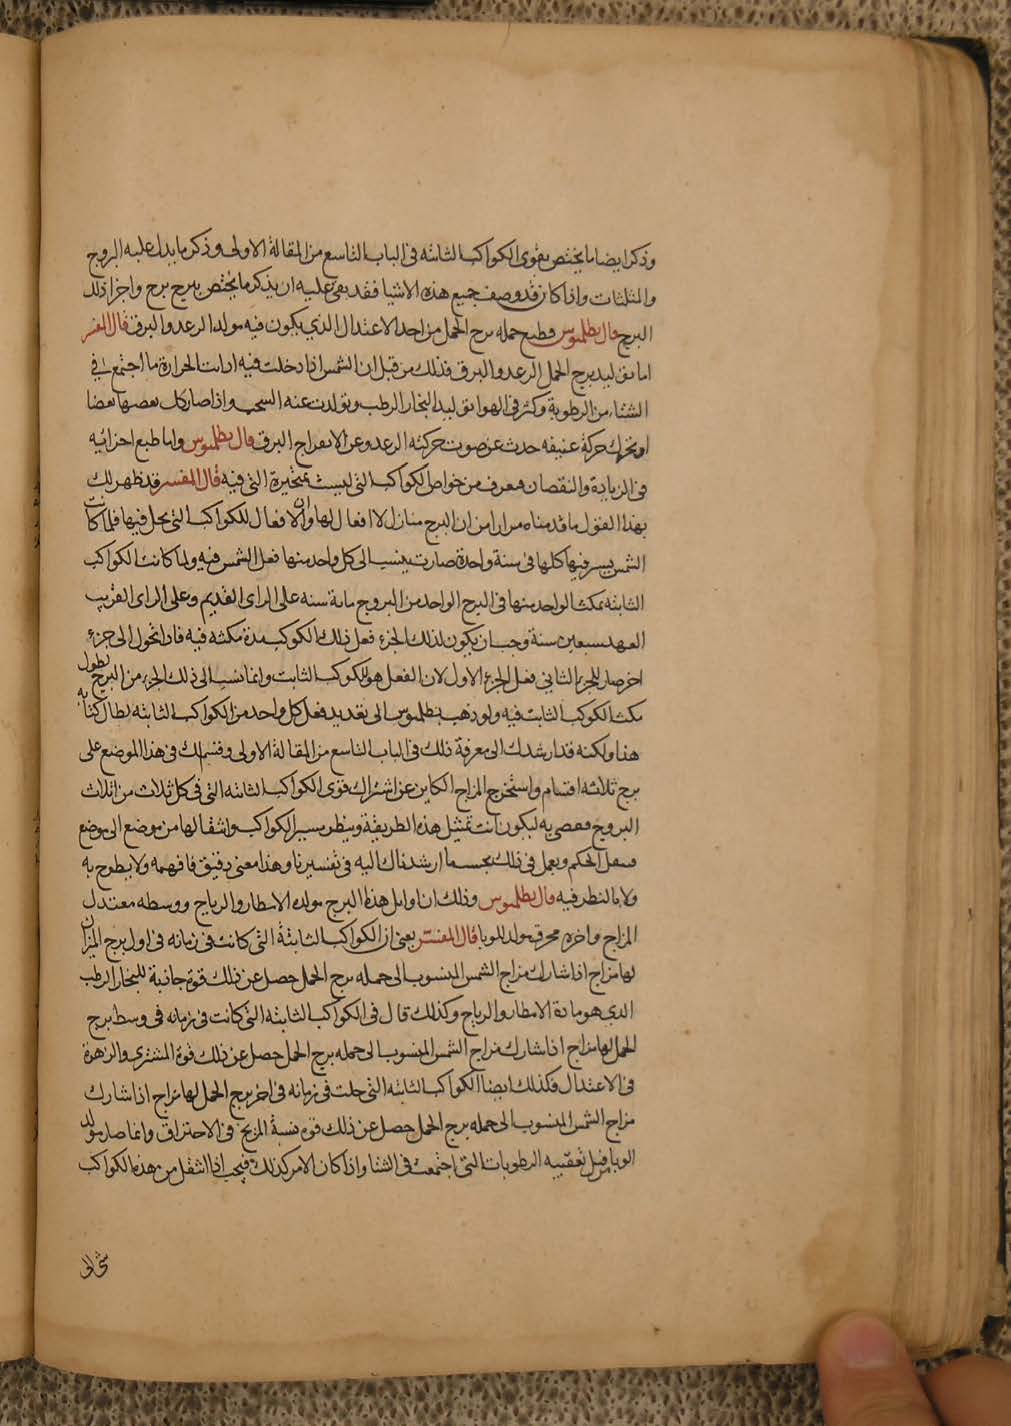 وذكر ايضا ما يختص بقوى الكواكب الثابته فى الباب التاسع من المقالة الاولى وذكر ما يدل عليه البروج
والمثلثات واذا كان قد وصف جميع هذه الاشيا فقد بقى عليه ان يذكر ما يختص ببرج برج واجزا ذلك
البرج قال بطلميوس فطبع جمله برج الحمل من احد الاعتدال الذي يكون فيه مولد الرعد والبرق قال المفسر
اما توليد برج الحمل الرعد والبرق فذلك من قبل ان الشمس اذا دخلت فيه اذابت الحرارة ما اجتمع فى
الشتاء من الرطوبة وكثر فى الهوا توليد البخار الرطب وتولدت عنه السحب واذا صار كل بعضها بعضا
او تحرك حركة عنيفه حدث عن صوت حركته الرعد وعن الانفراج البرق قال بطلميوس واما طبع اجزائه
فى الزيادة والنقصان فيعرف من خواص الكواكب التى ليست بمتحيرة التى فيه قال المفسر قد ظهر لك
بهذا القول ما قدمناه مرارا من ان البرج منازل لا افعال لها وان الافعال للكواكب التى تحل فيها فلما كانت
الشمس يسير فيها كلها فى سنة واحدة صارت ينسب الى كل واحد منها فعل الشمس فيه ولما كانت الكواكب
الثابته يمكث الواحد منها فى البرج الواحد من البروج مائة سنه على الراى القديم وعلى الراى القريب
العهد سبعين سنة وجب ان يكون لذلك الجزء فعل ذلك الكوكب مدة مكثه فيه فاذا تحول الى جزء
اخر صار للجزء الثانى فعل الجزء الاول لان الفعل هو للكوكب الثابت وانما نسب الى ذلك الجزء من البرج لطول
مكث الكوكب الثابت فيه ولو ذهب بطلميوس الى تعديد فعل كل واحد من الكواكب الثابته لطال كتابه
هذا ولكنه قد ارشدك الى معرفة ذلك فى الباب التاسع من المقالة الاولى وقسم لك فى هذا الموضع على
برج ثلاثة اقسام واستخرج المزاج الكاين عن اشتراك قوى الكواكب الثابته التى فى كل ثلاث من اثلاث
البروج به ليكون انت تمتثل هذه الطريقة وينظر مسير الكواكب وانتقالها من موضع الى موضع
الحكم ويعمل فى ذلك بحسب ما ارشدناك اليه فى تفسيرنا وهذا معنى دقيق فافهمه ولا به
ولا بالنظر فيه قال بطلميوس وذلك ان اوايل هذا البرج مولده الامطار والرياح ووسطه معتدل
المزاج واخره محرق مولد للوبا قال المفسر يعنى ان الكواكب الثابتة التى كانت فى زمانه فى اول برج الميزان
لها مزاج اذا شارك مزاج الشمس المنسوب الى جمله برج الحمل حصل عن ذلك قوة جاذبة للبخار الرطب
الذى هو مادة الامطار والرياح وكذلك قال فى الكواكب الثابته التى كانت فى زمانه فى وسط برج
الحمل لها مزاج اذا شارك مزاج الشمس المنسوب الى جمله برج الحمل حصل عن ذلك قوة المشترى والزهرة
فى الاعتدال فكذلك ايضا الكواكب الثابته التى حلت فى زمانه فى اخر برج الحمل لها مزاج اذا شارك
مزاج الشمس المنسوب الى جمله برج الحمل حصل عن ذلك قوه المريخ فى الاحتراق وانما صار مولد
الوبا من قبل الرطوبات التى اجتمعت فى الشتا واذا كان الامر كذلك فيجب اذا انتقل من هذه الكواكب